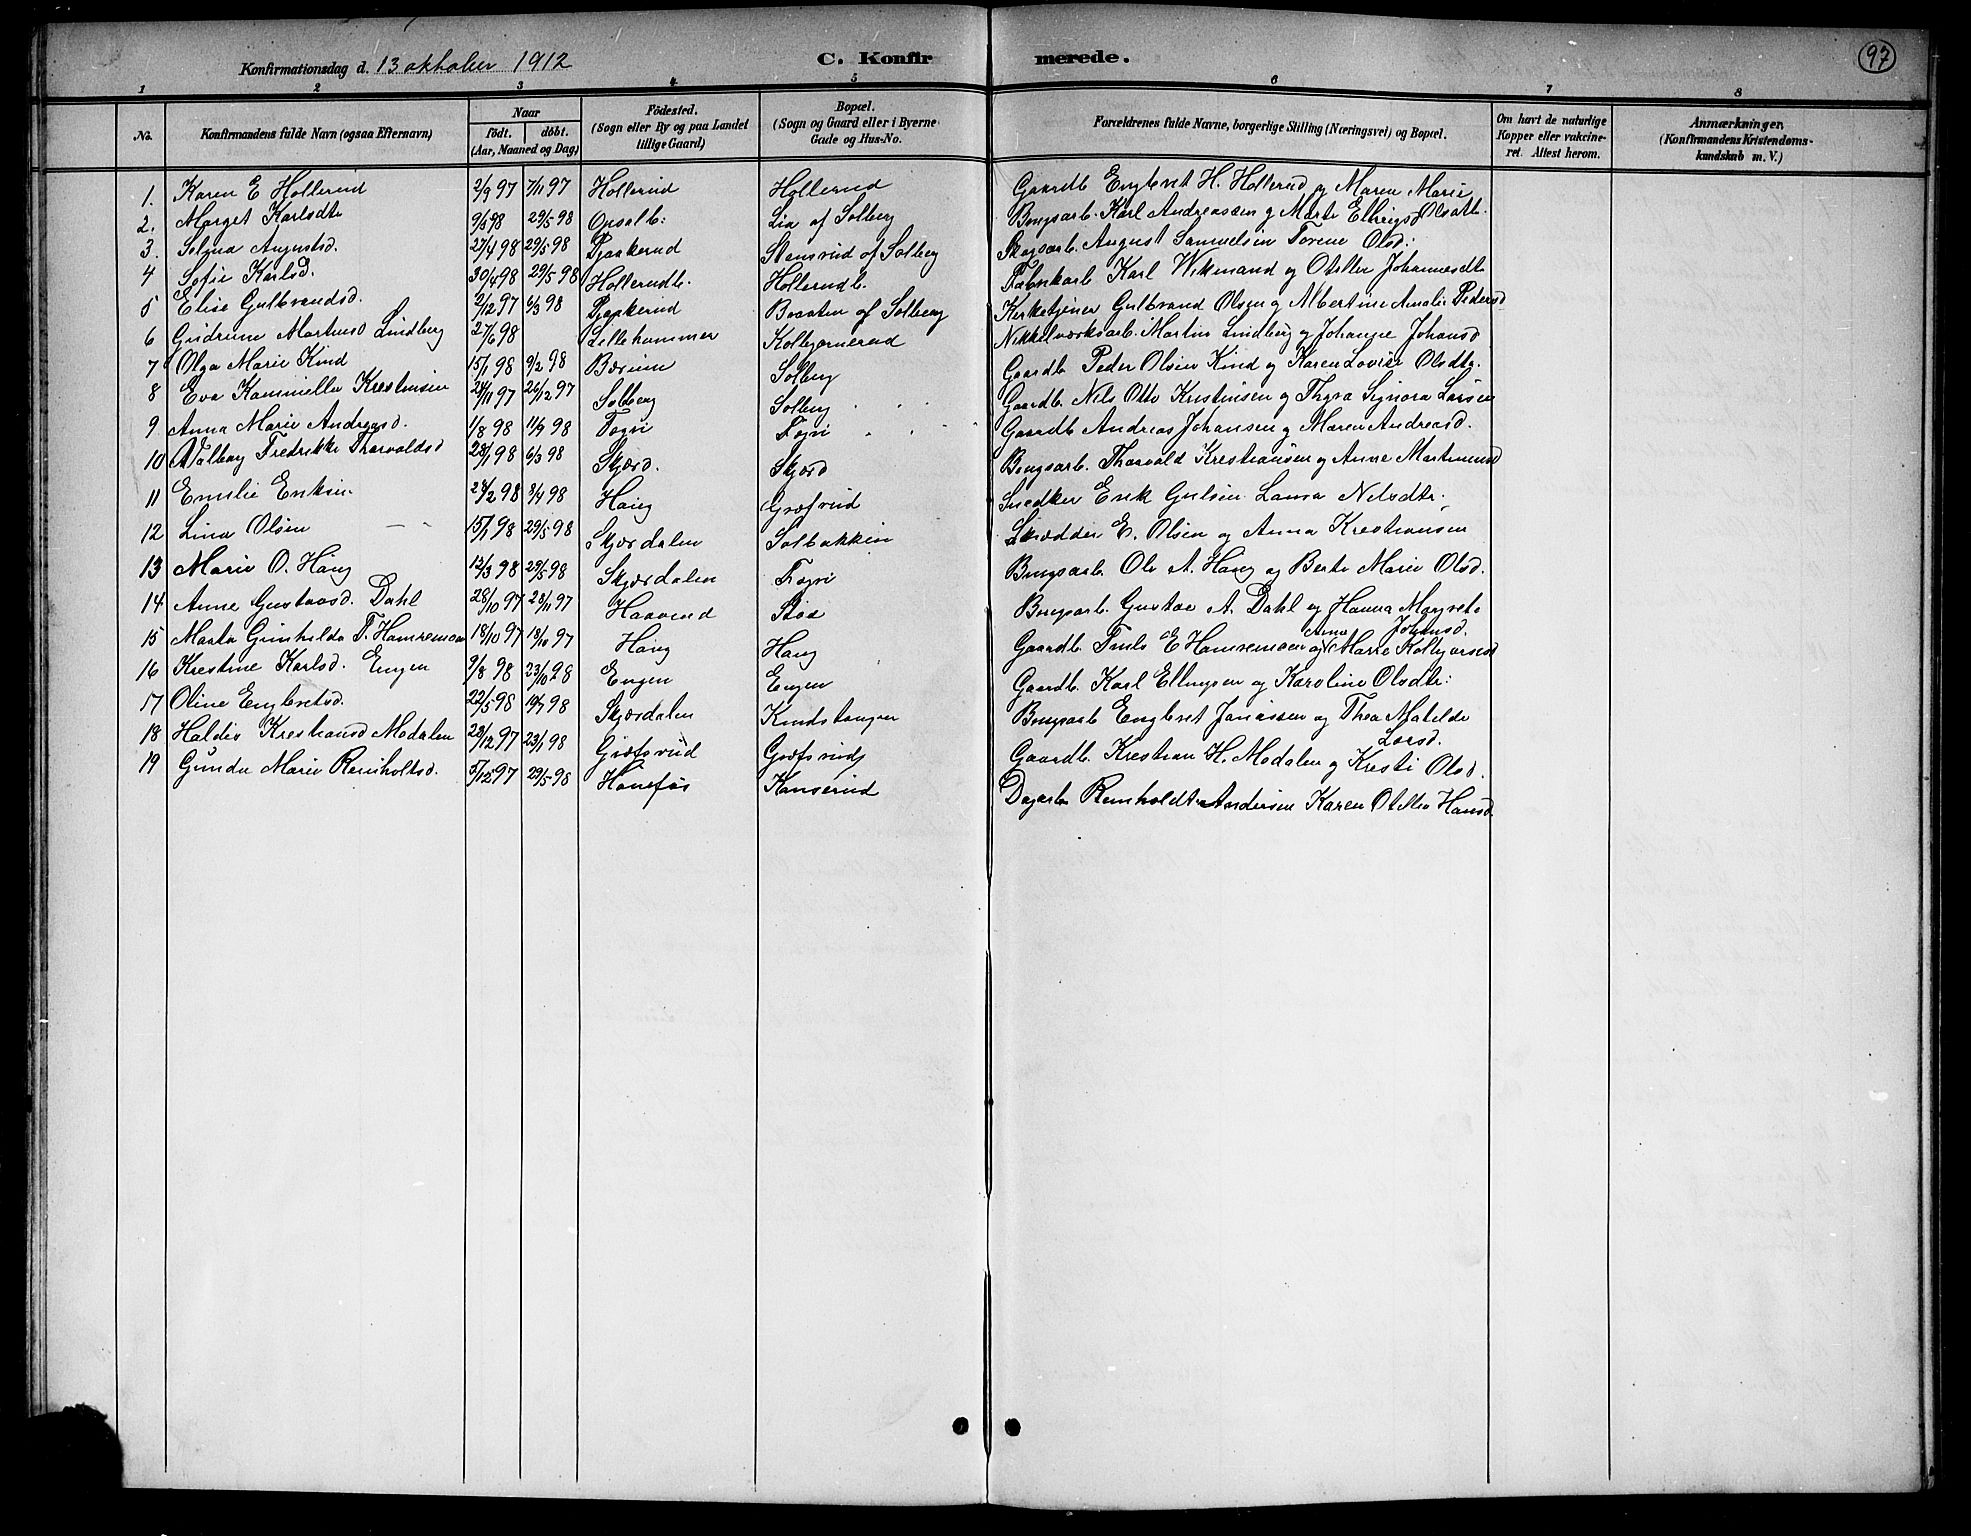 Konfirmationsdag d. 13 oktober 1912 C. Konfirmerede. 97
1 2 3 4 5 6 7 8
No. Konfirmandens fulde Navn (ogsaa Efternavn) Naar født. døbt. (Aar, Maaned og Dag) Fødested. (Sogn eller By og paa Landet tillige Gaard) Bopæl. (Sogn og Gaard eller i Byerne Gade og Hus-No. Forældrenes fulde Navne, borgerlige Stilling (Næringsvei) og Bopæl. Om havt de naturlige Kopper eller vakcineret. Attest herom. Anmærkninger. (Konfirmandens Kristendomskundskab m. V.)
1. Karen E Hollerud 2/9 97 7/11 97 Hollerud Hollerud Gaardb Engebret H. Hollerud og Maren Marie
2. Marget Karlsdtr 9/3 98 29/5 98 Opsalb: Lia af Solberg Brugsarb. Karl Andreassen g Marte Olsdtr.
3. Selma Augustsd. 27/4 98 29/5 98 Tjaakerud Stensrud af Solberg Skogsarb. August Samuelsen Torene Olsd:
4 Sofie Karlsd. 30/4 98 29/5 98 Hollerudb. Hollerudb. Fabrikarb Karl Wikmand og Otellie Johannesdtr
5 Elise Gulbrandsd. 2/12 97 6/3 98 Tjaakerud Braaten af Solberg Kirketjener Gulbrand Olsen g Albertine Amalie Pedersd
6 Gudrun Martinsd Lindberg 27/6 98 Lillehammer Kolbjørnerud Nikkelværksarb. Martin Lindberg og Johanne Johansd
7 Olga Marie Kind 15/1 98 9/2 98 Bærum Solberg Gaardb Peder Olsen Kind og Karen Lovise Olsdtr.
8 Eva Kammilla Kristensen 24/11 97 26/12 97 Solberg Solberg Gaardb. Nils Otto Kristensen og Thyra Signora Larsen
9 Anna Marie Andreasd. 1/8 98 11/9 98 Togri Togri Gaardb Andreas Johansen g Maren Andreasd.
10 Valborg Fredrikke Thorvaldsd 28/1 98 6/3 98 Skjærd. Skjærd Brugsarb. Thorvald Kristiansen og Anne Martinusd
11 Emilie Eriksen 24/2 98 3/4 98 Haug Græfsrud Snedker Erik Gulsen Laura Nilsdtr.
12 Lina Olsen 15/1 98 29/5 98 Skjærdalen Solbakken Skrædder E. Olsen og Anna Kristiansen
13 Marie O. Haug 12/3 98 29/5 98 Skjærdalen Togri Brugsarb. Ole A. Haug og Berte Marie Olsd.
14 Anne Gustavsd. Dahl 28/10 97 28/11 97 Haavend Stoa Brugsarb. Gustav A. Dahl og Hanna Margrete Johansd.
15 Marta Gunhilda T. Hamremoen 18/10 97 18/10 97 Haug Haug Gaardb. Truls E Hamremoen og Anne Marie Kolbjørnsd
16 Kristine Karlsd. Engen 9/8 98 23/10 98 Engen Engen Gaardb. Karl Ellingsen og Karoline Olsdtr:
17 Oline Engbretsd. 22/5 98 98 Skjærdalen Kindstangen Brugsarb Engbret Janassen og Thea Matelde Larsd.
18 Haldis Kristiansd Modalen 28/12 97 23/1 98 Græfsrud Græfsrud Gaardb. Kristian H. Modalen g Kristi Olsd.
19 Gunda Marie Reinholtsd. 5/12 97 29/5 98 Hønefos Hanserud Dagarb Reinholdt Andersen Karen Otellie Hansd.